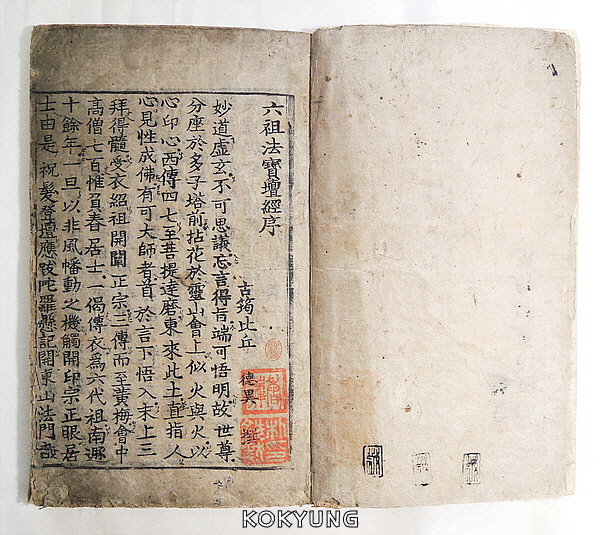 六祖法寶壇經序
古筠比丘 德異 撰
妙道虛玄不可思議忘言得旨端可悟明故世尊
分座於多子塔前拈花於靈山會上似火與火以
心印心西傳四七至菩提達磨東來此土直指人
心見性成佛有可大師者首於言下悟入末上三
拜得髓受衣紹祖開闡正宗三傳而至黃梅會中
高僧七百惟負舂居士一偈傳衣爲六代祖南遯
十餘年一旦以非風幡動之機觸開印宗正眼居
士由是祝髮登壇應跋陀羅懸記開東山法門
KOKYUNG